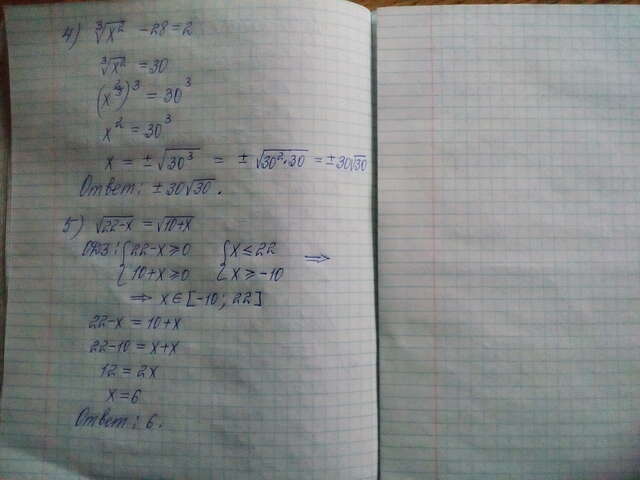 4) ∛x² - 28 = 2
∛x² = 30
(x^(2/3))³ = 30³
x² = 30³
x = ± √30³ = ± √30²·30 = ± 30√30
Ответ: ± 30√30.
5) √22-x = √10+x
ОДЗ: { 22-x ≥ 0 { x ≤ 22 ⇒
{ 10+x ≥ 0 { x ≥ -10
⇒ x ∈ [-10; 22]
22-x = 10+x
22-10 = x+x
12 = 2x
x = 6
Ответ: 6.